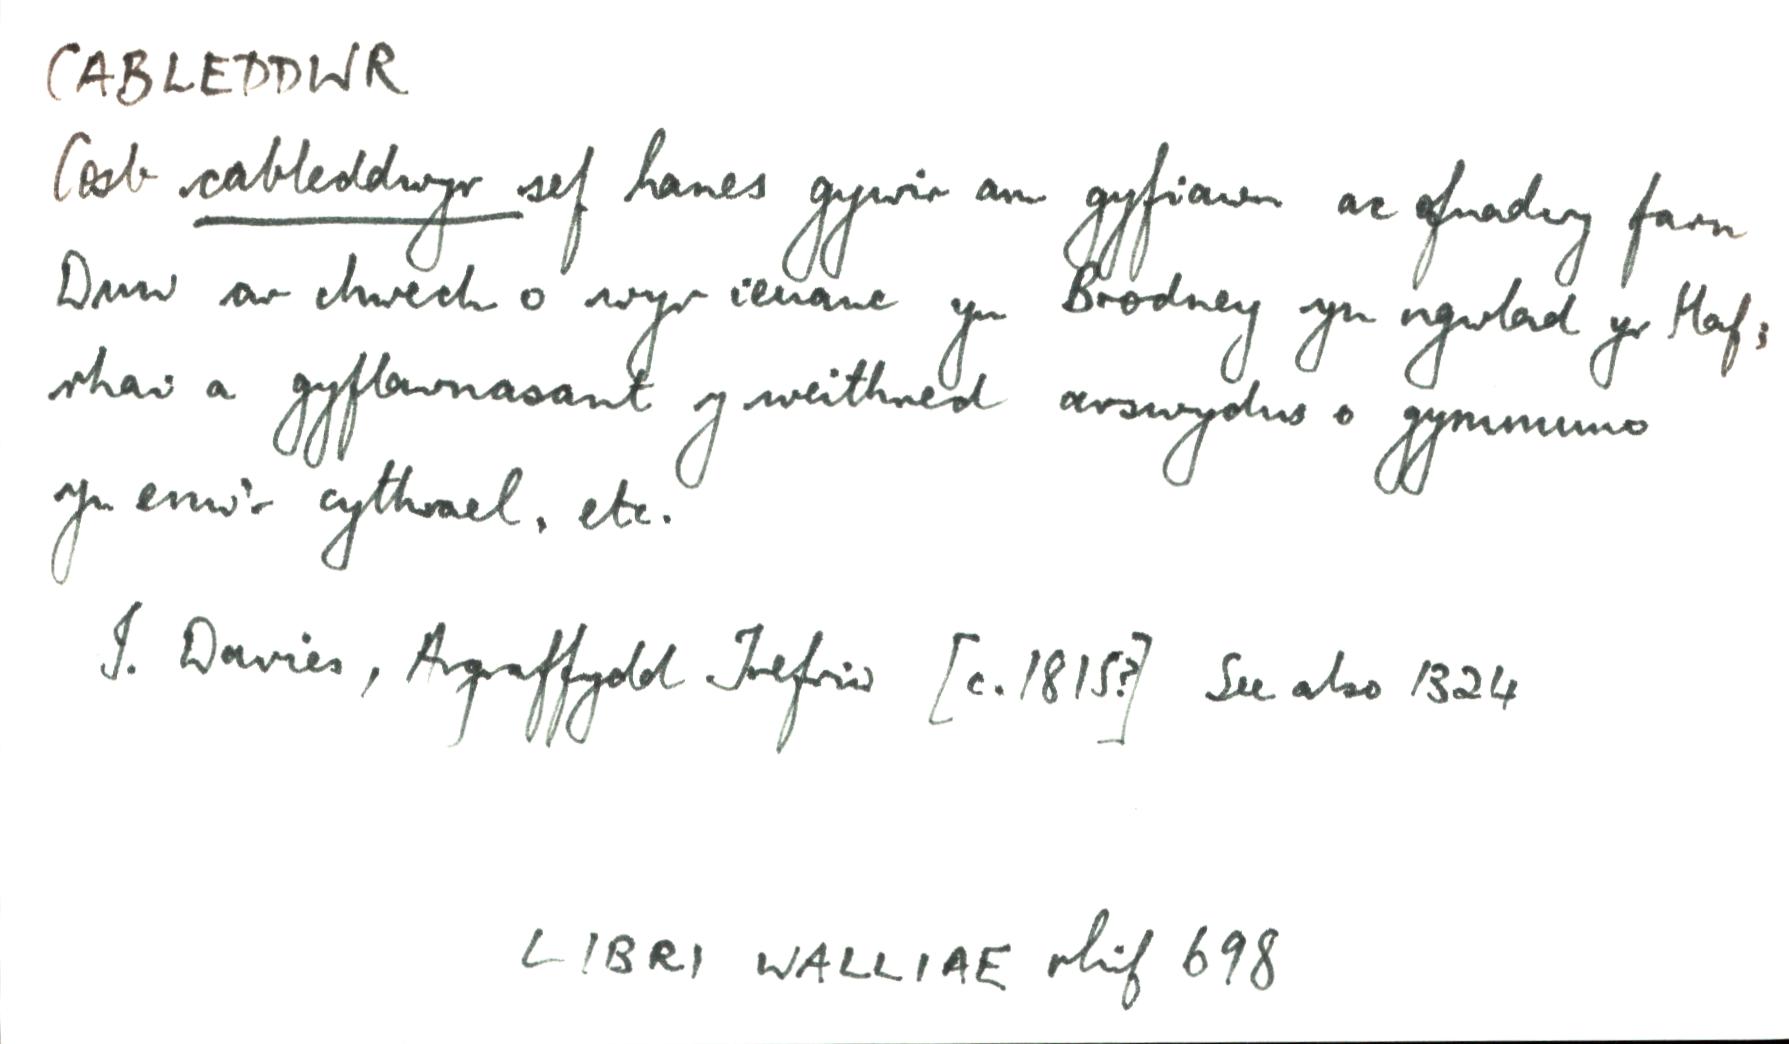 CABLEDDWR
Cosb cableddwyr sef hanes gywir am gyfiawn ac ofnadwy farn
Duw ar chwech o wyr ieuanc yn Brodney yn ngwlad yr Haf;
rhai a gyflawnasant y weithred arswydus o gymmuno
yn enw'r cythrael, etc.
J. Davies, Argraffydd Trefriw [c. 1815?] See also 1324
LIBRI WALLIAE rhif 698